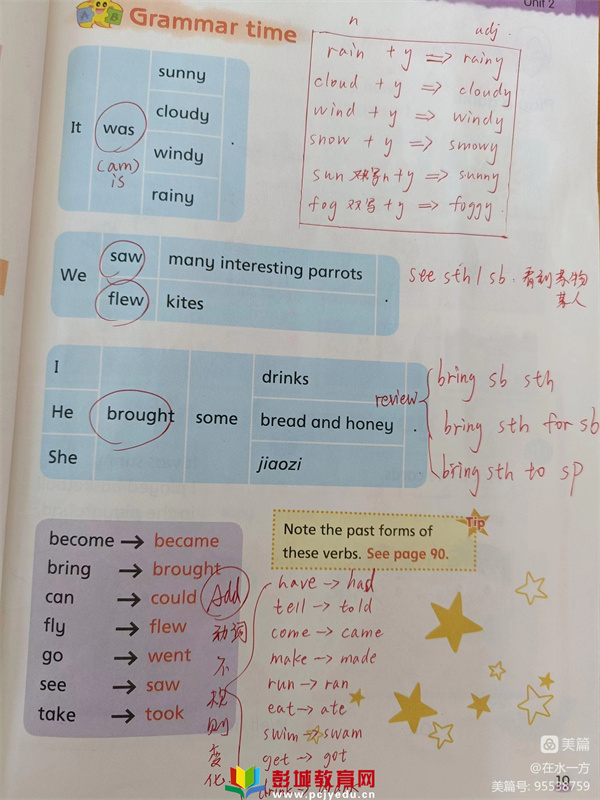 Unit 2
Grammar time
n adj.
rain + y ⇒ rainy
cloud + y ⇒ cloudy
wind + y ⇒ windy
snow + y ⇒ snowy
sun 双写n + y ⇒ sunny
fog 双写 + y ⇒ foggy
It was
(am)
is
sunny
cloudy
windy
rainy
.
We
saw many interesting parrots
flew kites
.
see sth / sb. 看到某物
某人
I
He
She
brought some
drinks
bread and honey
jiaozi
.
review
bring sb sth
bring sth for sb
bring sth to sp
become → became
bring → brought
can → could
fly → flew
go → went
see → saw
take → took
Tip
Note the past forms of
these verbs. See page 90.
Add
动词
不
规
则
变
化
have → had
tell → told
come → came
make → made
run → ran
eat → ate
swim → swam
get → got
19
彭城教育网
www.pcjyedu.cn
美篇
@在水一方
美篇号: 95538759